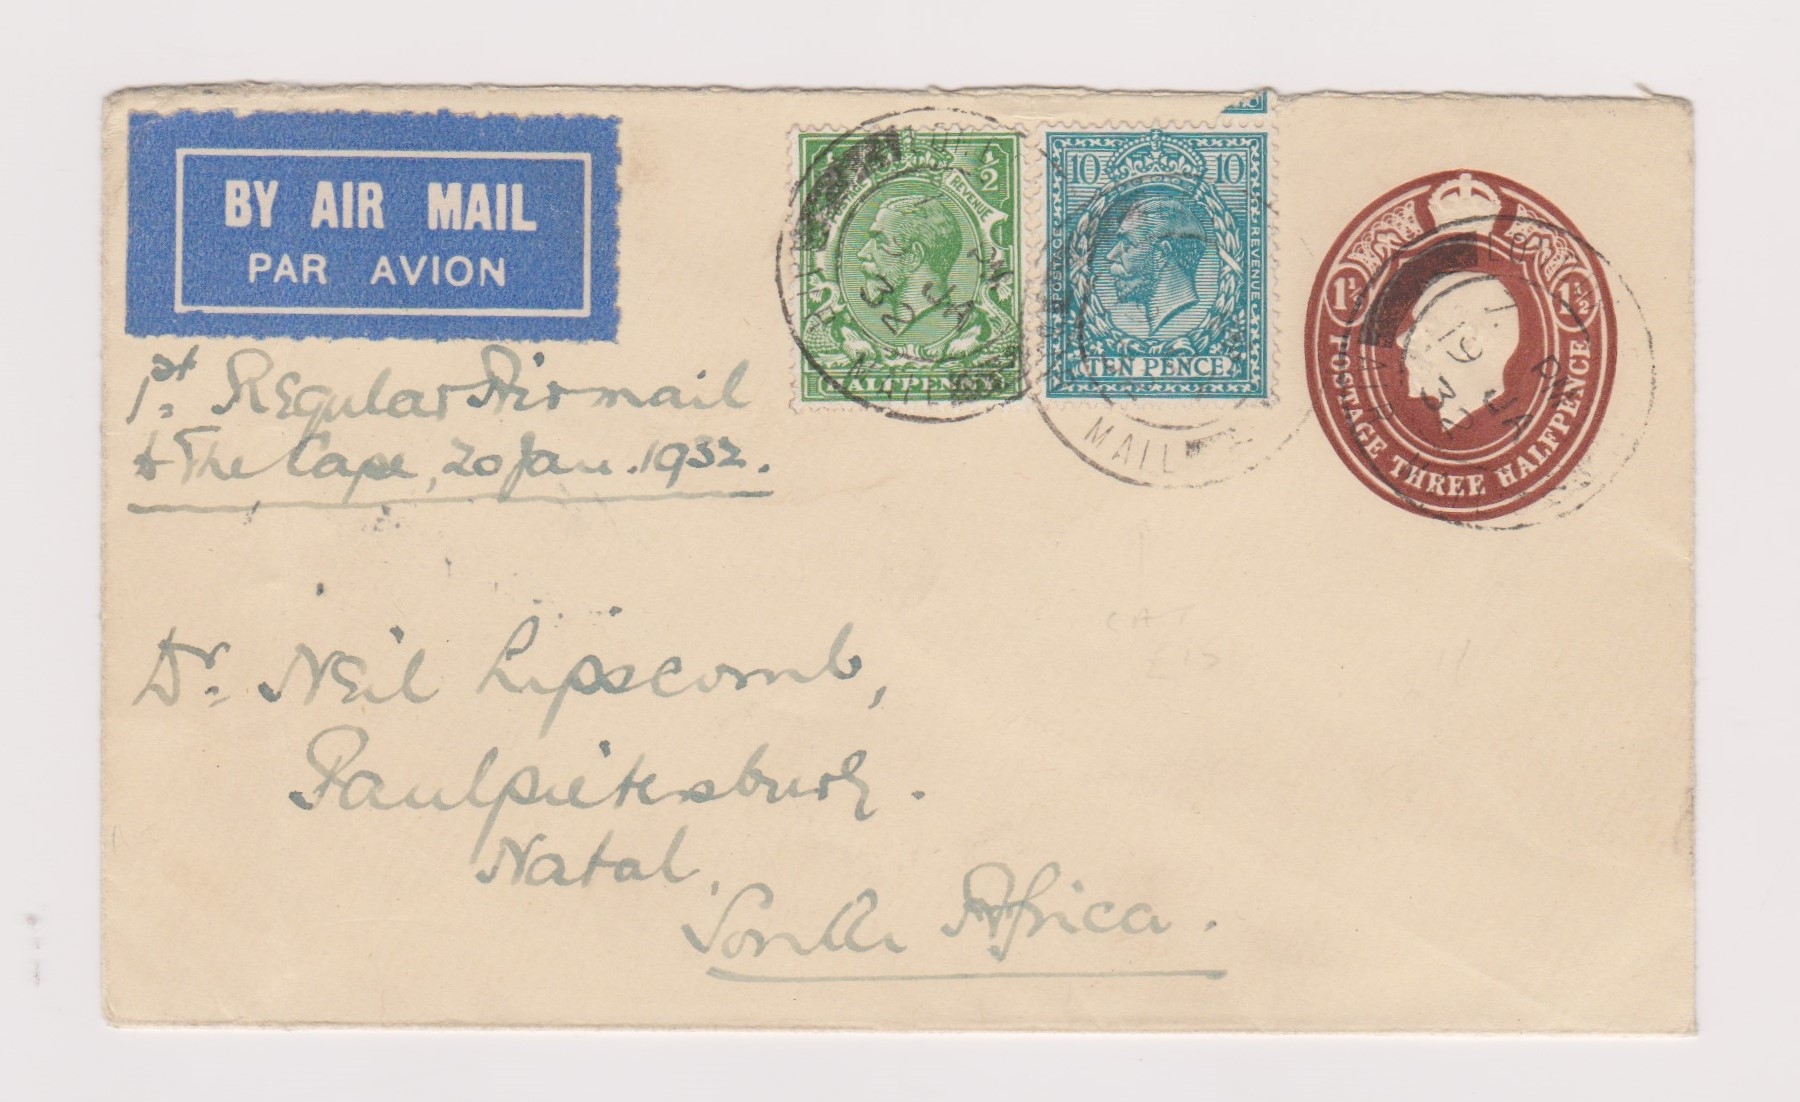 BY AIR MAIL
PAR AVION
1st Regular Airmail
to The Cape, 20 Jan. 1932.
½ ½
POSTAGE REVENUE
HALFPENNY
10 10
POSTAGE REVENUE
TEN PENCE
1½ 1½
POSTAGE THREE HALFPENCE
AIR MAIL
PM
19 JA
32
MAIL
Dr. Neil Lipscomb,
Paulpietersburg.
Natal,
South Africa.
CAT